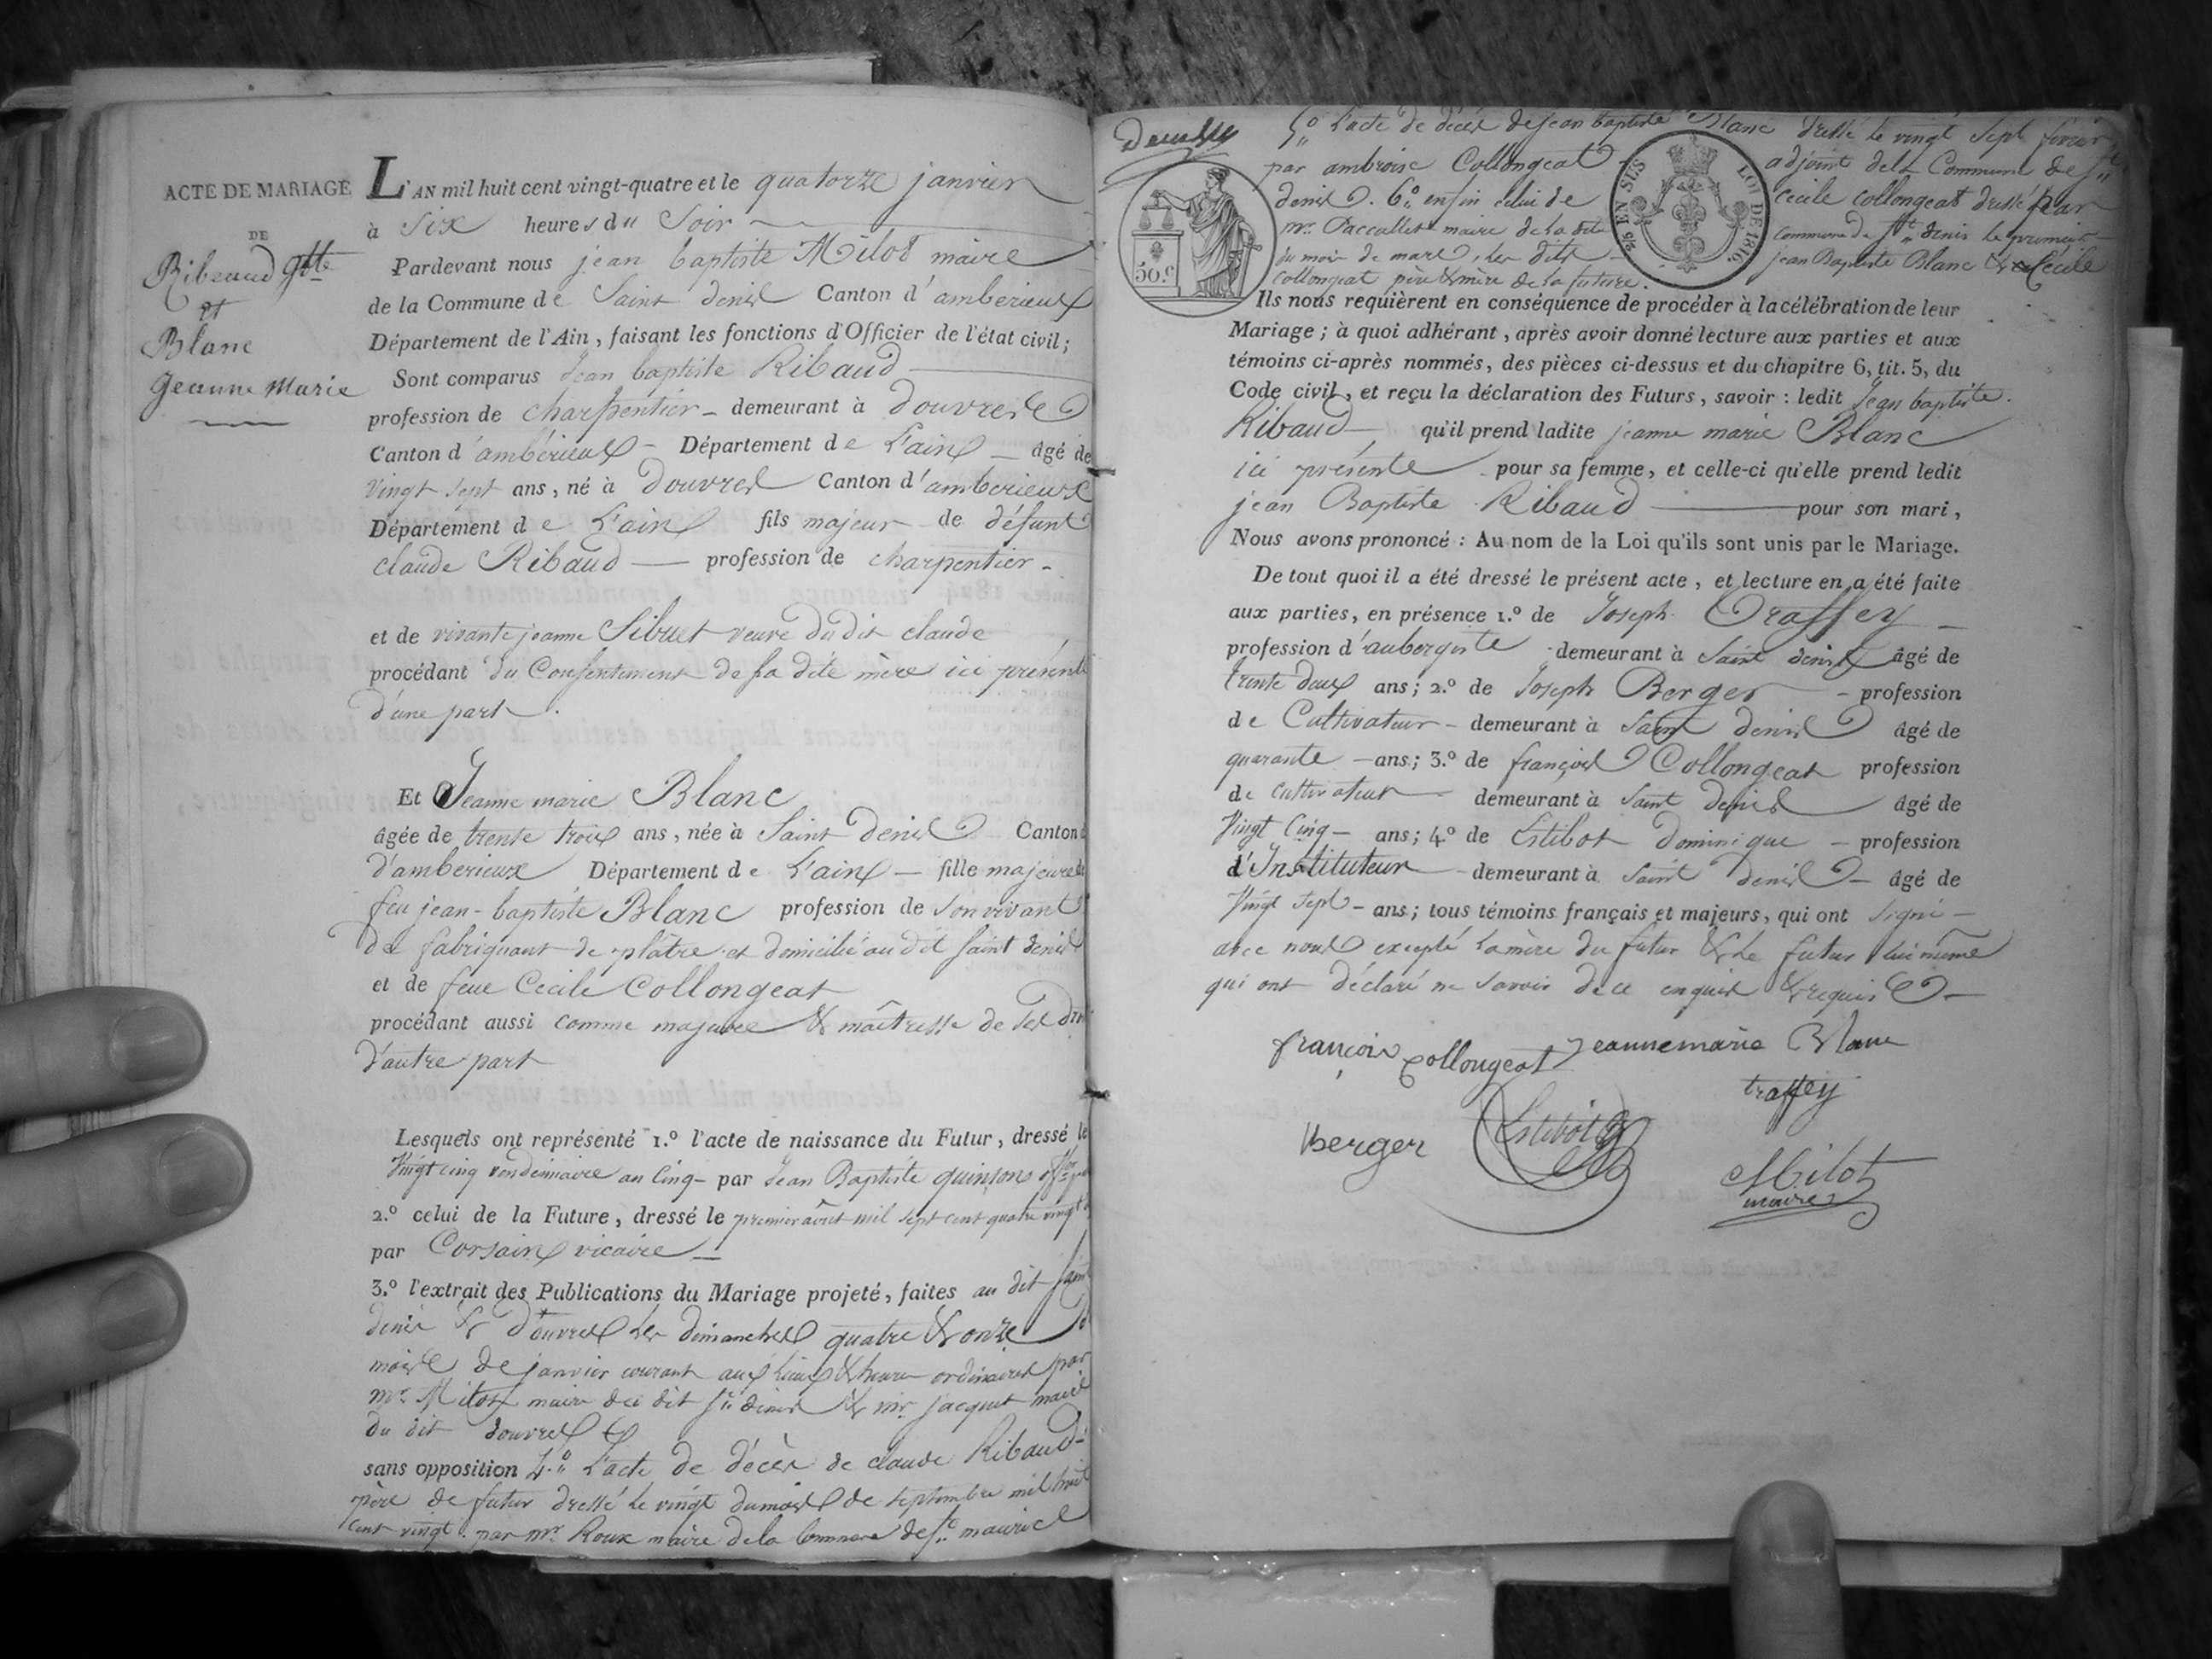 ACTE DE MARIAGE
DE
Ribeaud Jn Bte
et
Blanc
Jeanne Marie
L'AN mil huit cent vingt-quatre et le quatorze janvier
à Six heures du Soir
Pardevant nous jean baptiste Milot maire
de la Commune de Saint denis Canton d'amberieux
Département de l'Ain, faisant les fonctions d'Officier de l'état civil;
Sont comparus Jean baptiste Ribaud
profession de charpentier demeurant à douvres
Canton d'ambérieux Département de L'ain âgé de
vingt sept ans, né à Douvres Canton d'amberieux
Département de L'ain fils majeur de défunt
claude Ribaud profession de charpentier
et de vivante jeanne Sibuet veuve du dit claude
procédant du Consentement de sa dite mère ici présente
d'une part.
Et Jeanne marie Blanc
âgée de trente trois ans, née à Saint denis Canton
d'amberieux Département de L'ain fille majeure de
feu jean-baptiste Blanc profession de Son vivant
de fabriquant de plâtre et domicilié au dit Saint denis
et de feue Cecile Collongeat
procédant aussi comme majeure & maîtresse de ses droits
d'autre part
Lesquels ont représenté 1.º l'acte de naissance du Futur, dressé le
Vingt cinq vendémiaire an Cinq par Jean Baptiste quinson
2.º celui de la Future, dressé le premier août mil sept cent quatre vingt
par Corsain vicaire
3.º l'extrait des Publications du Mariage projeté, faites au dit Saint
denis & Douvres les dimanches quatre & onze du
mois de janvier courant aux lieux & heures ordinaires par
Mr. Milot maire du dit St. denis & mr. jacquet maire
du dit douvres
sans opposition 4.º L'acte de décès de claude Ribaud
père de futur dressé le vingt du mois de septembre mil huit
cent vingt par mr. Roux maire de la Commune de St. maurice
5.º L'acte de décès de jean baptiste Blanc dressé le vingt sept février
par ambroise Collongeat adjoint de la Commune de St.
denis. 6.º enfin celui de Cecile collongeat dressé par
mr. Paccallet maire de la dite commune de St. denis le premier
du mois de mars, les dits jean Baptiste Blanc & Cécile
Collongeat père & mère de la future.
50.c
25 EN SUS
LOI DE 1816.
Ils nous requièrent en conséquence de procéder à la célébration de leur
Mariage; à quoi adhérant, après avoir donné lecture aux parties et aux
témoins ci-après nommés, des pièces ci-dessus et du chapitre 6, tit. 5, du
Code civil, et reçu la déclaration des Futurs, savoir: ledit Jean baptiste
Ribaud qu'il prend ladite jeanne marie Blanc
ici présente pour sa femme, et celle-ci qu'elle prend ledit
jean Baptiste Ribaud pour son mari,
Nous avons prononcé: Au nom de la Loi qu'ils sont unis par le Mariage.
De tout quoi il a été dressé le présent acte, et lecture en a été faite
aux parties, en présence 1.º de Joseph Traffey
profession d'aubergiste demeurant à Saint denis âgé de
trente deux ans; 2.º de Joseph Berger profession
de Cultivateur demeurant à Saint denis âgé de
quarante ans; 3.º de françois Collongeat profession
de cultivateur demeurant à Saint denis âgé de
Vingt Cinq ans; 4º de Estibot dominique profession
d'Instituteur demeurant à Saint denis âgé de
Vingt Sept ans; tous témoins français et majeurs, qui ont signé
avec nous excepté la mère du futur & le futur lui même
qui ont déclaré ne savoir de ce enquis & requis
françois collongeat jeanne marie Blanc
traffey
Berger Estibot
Milot
maire